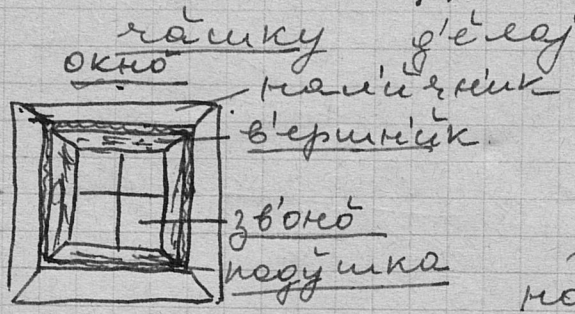 ча́шку д'е́лај
окно́
нал'и́ч'н'ик
в'ершн'и́к
зв'оно́
поду́шка
но